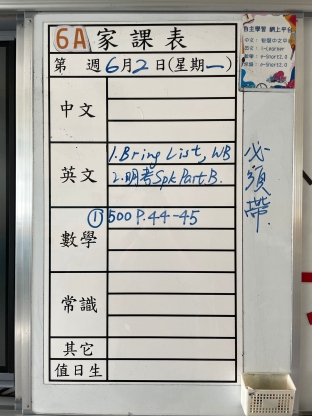 6A 家課表
第 週 6月2日(星期一)
中文
英文
1. Bring List, WB
2. 明考 Spk Part B.
必須帶
數學
① 500 P.44-45
常識
其它
值日生
自主學習 網上平台